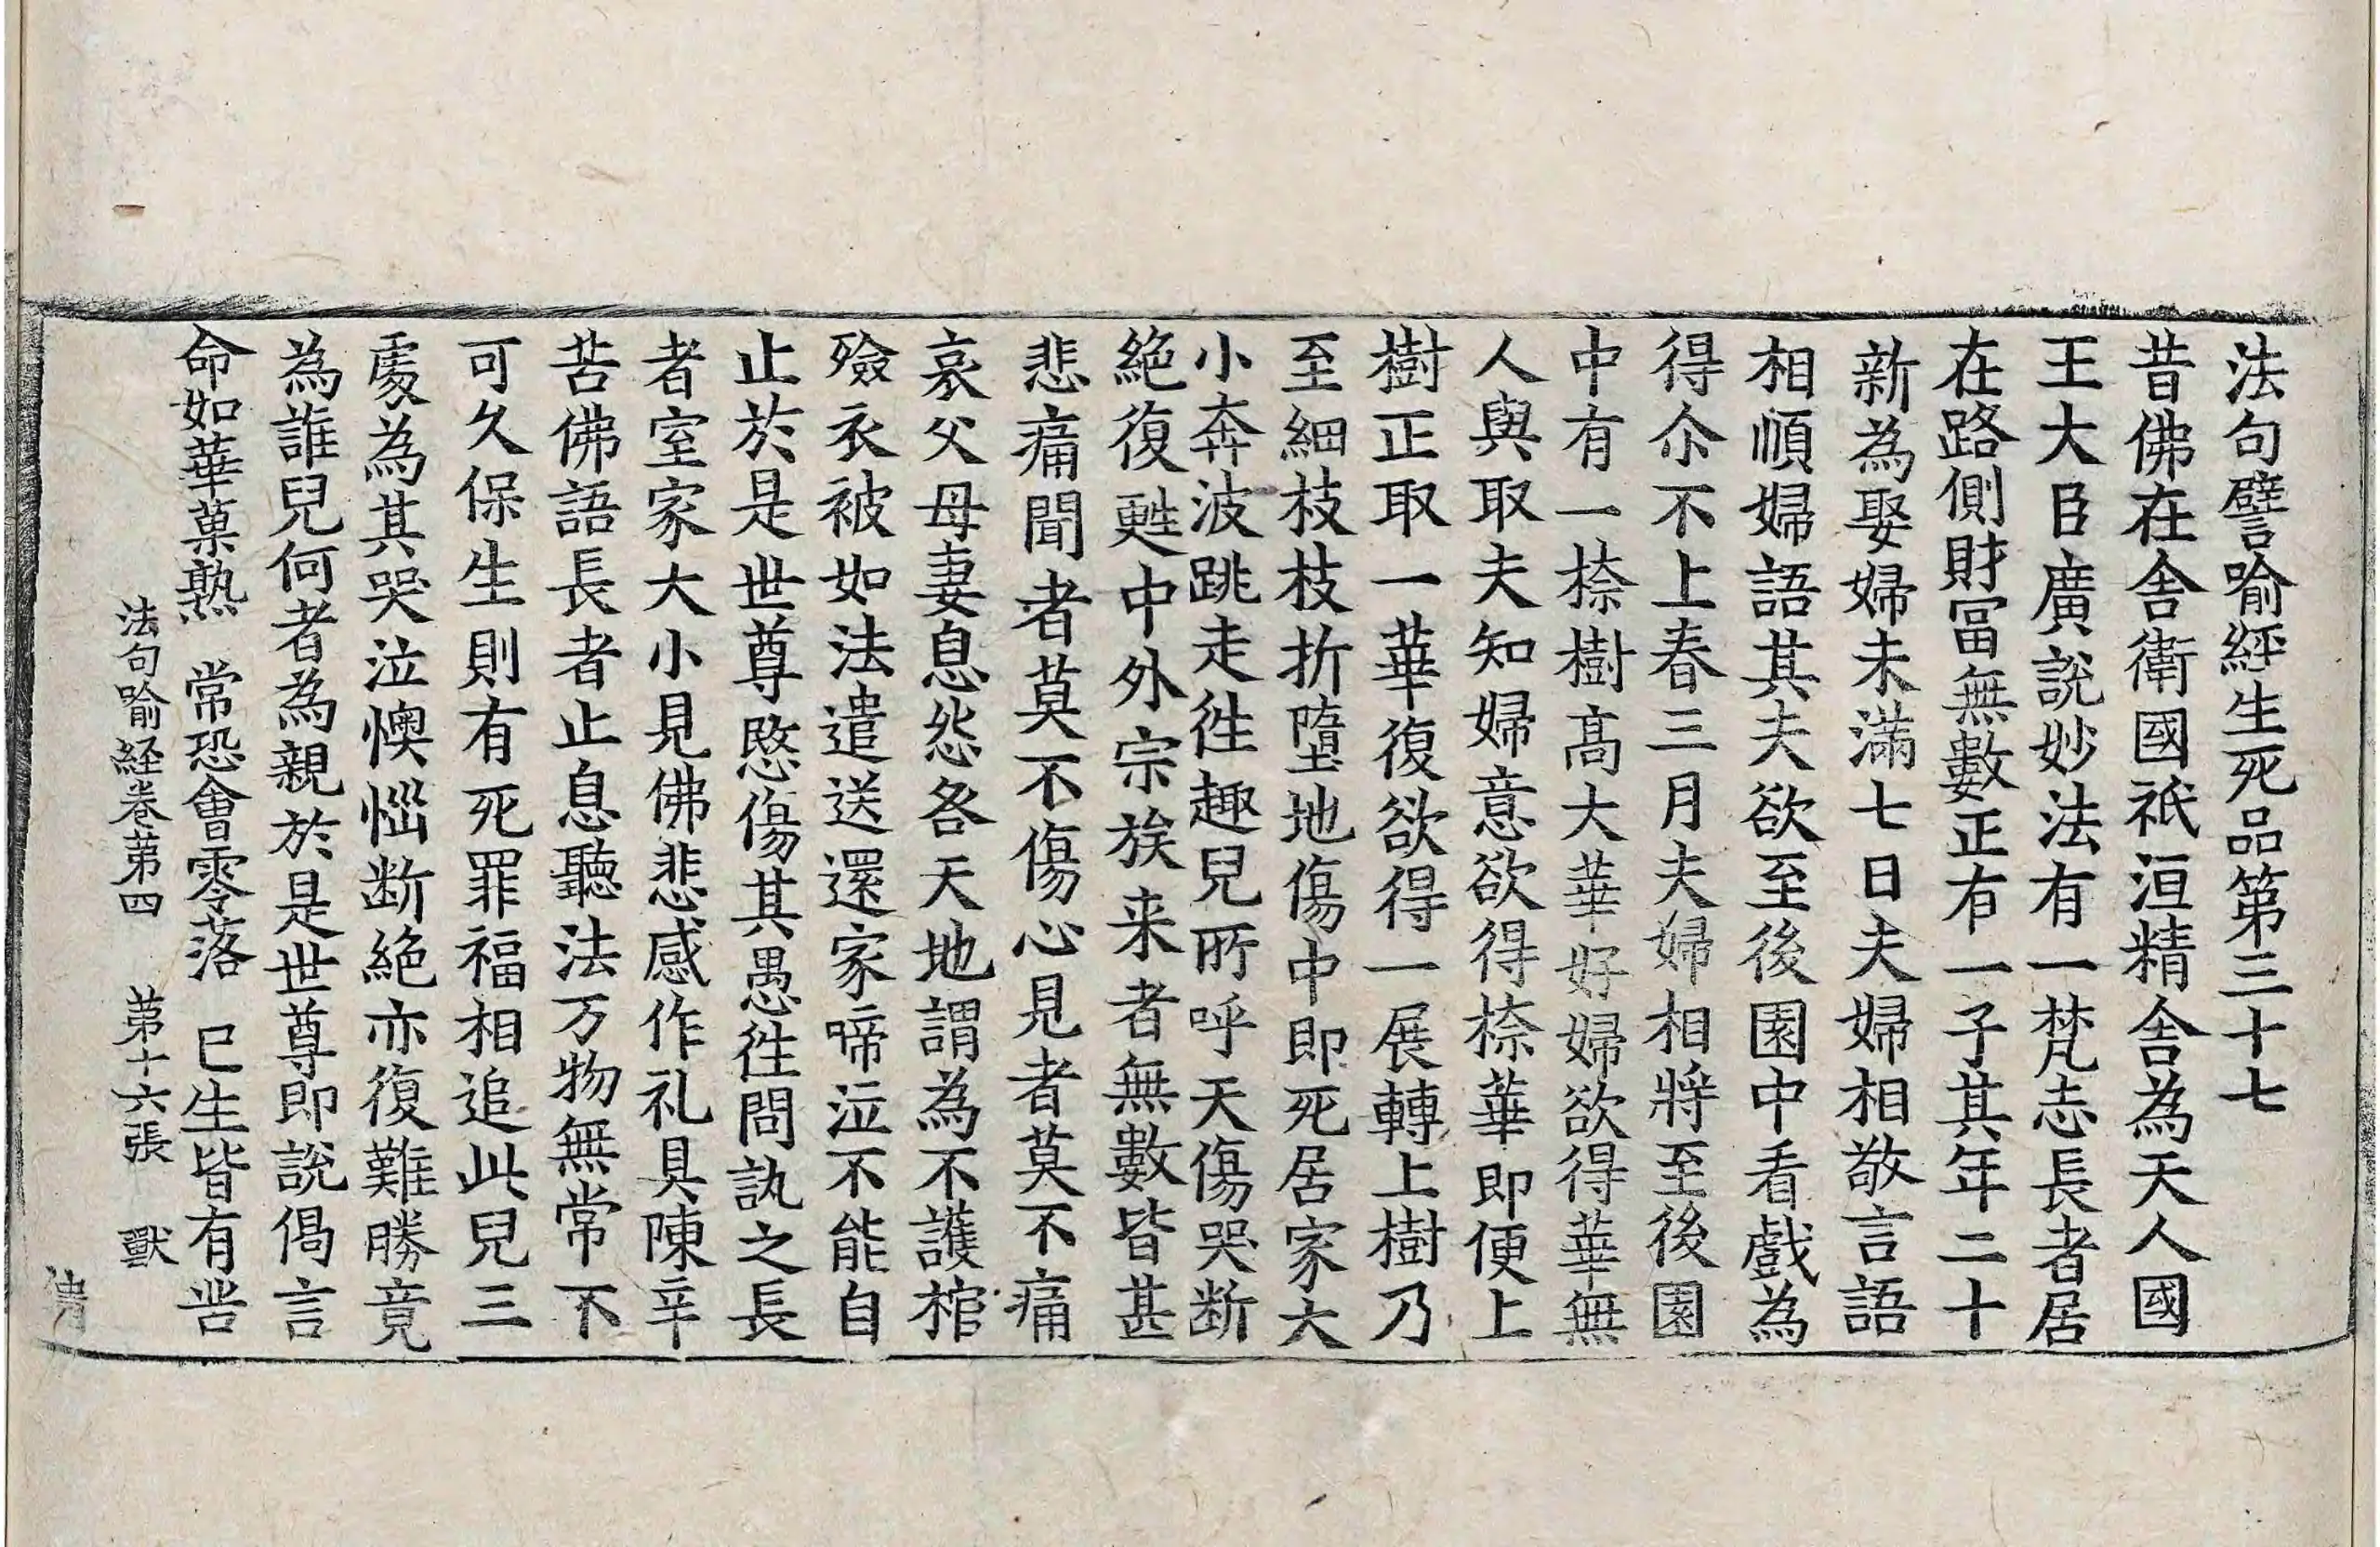 法句譬喻經生死品第三十七
昔佛在舍衛國祇洹精舍為天人國
王大臣廣說妙法有一梵志長者居
在路側財冨無數正有一子其年二十
新為娶婦未滿七日夫婦相敬言語
相順婦語其夫欲至後園中看戲為
得尒不上春三月夫婦相將至後園
中有一㮈樹髙大華好婦欲得華無
人與取夫知婦意欲得㮈華即便上
樹正取一華復欲得一展轉上樹乃
至細枝枝折墮地傷中即死居家大
小奔波跳走徃趣兒所呼天傷哭断
絕復甦中外宗族来者無數皆甚
悲痛聞者莫不傷心見者莫不痛
哀父母妻息怨咎天地謂為不護棺
殮衣被如法遣送還家啼泣不能自
止於是世尊愍傷其愚徃問訊之長
者室家大小見佛悲感作礼具陳辛
苦佛語長者止息聽法万物無常不
可久保生則有死罪福相追此兒三
處為其哭泣懊惱断絕亦復難勝竟
為誰兒何者為親於是世尊即說偈言
命如華菓熟　常恐會零落　已生皆有苦
法句喻経卷第四　第十六張　獸